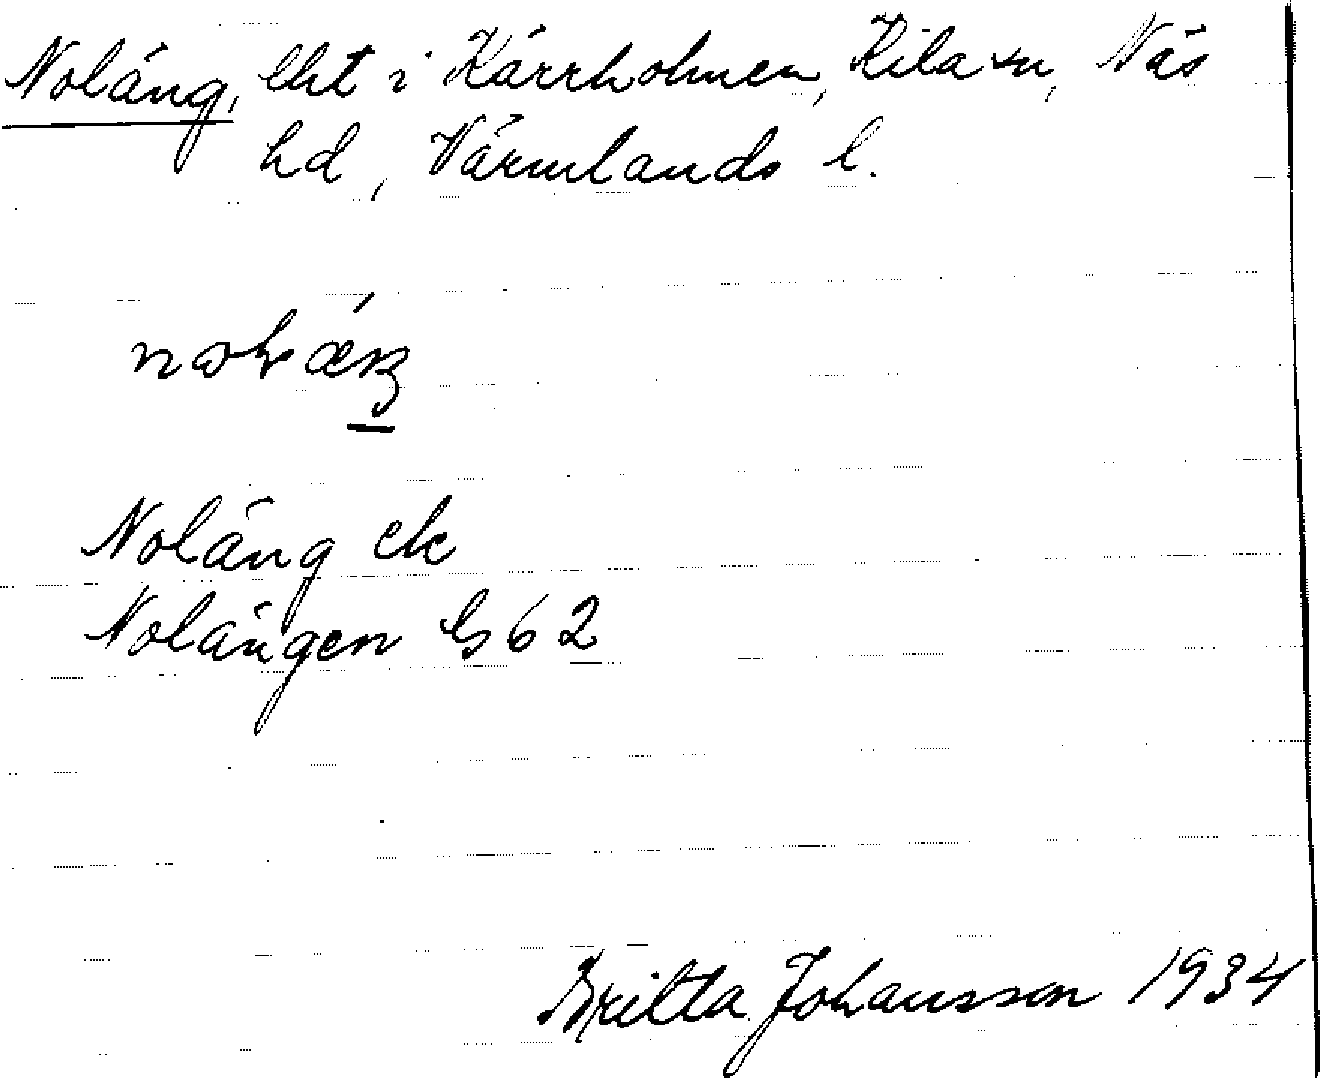 Noläng, lht i Kärrholmen, Kila sn, Näs
hd, Värmlands l.
Noläng ek
Nolängen G62
Britta Johansson 1934